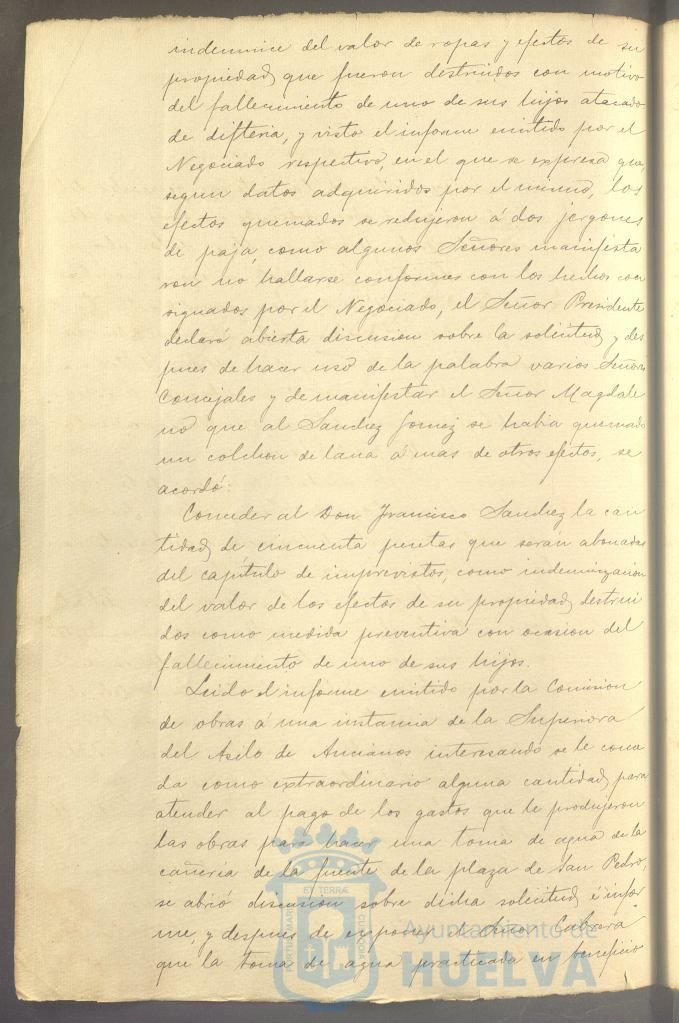 indemnice del valor de ropas y efectos de su
propiedad que fueron destruidos con motivo
del fallecimiento de uno de sus hijos atacado
de difteria, y visto el informe emitido por el
Negociado respectivo, en el que se expresa que,
segun datos adquiridos por el mismo, los
efectos quemados se redujeron á dos jergones
de paja, como algunos Señores manifesta
ron no hallarse conformes con los hechos con
signados por el Negociado, el Señor Presidente
declaró abierta discusion sobre la solicitud y des
pues de hacer uso de la palabra varios Señores
Concejales y de manifestar el Señor Magdale
no que al Sanchez Gomez se habia quemado
un colchon de lana á mas de otros efectos, se
acordó:
Conceder al Don Francisco Sanchez la can
tidad de cincuenta pesetas que seran abonadas
del capitulo de imprevistos, como indemnizacion
del valor de los efectos de su propiedad destrui
dos como medida preventiva con ocasion del
fallecimiento de uno de sus hijos.
Leido el informe emitido por la Comision
de obras á una instancia de la Superiora
del Asilo de Ancianos interesando se le conce
da como extraordinario alguna cantidad para
atender al pago de los gastos que le produjeron
las obras para hacer una toma de agua de la
cañeria de la fuente de la plaza de San Pedro,
se abrió discusion sobre dicha solicitud é infor
me, y despues de exponer el Señor Cabrera
que la toma de agua practicada en beneficio
Ayuntamiento de
HUELVA